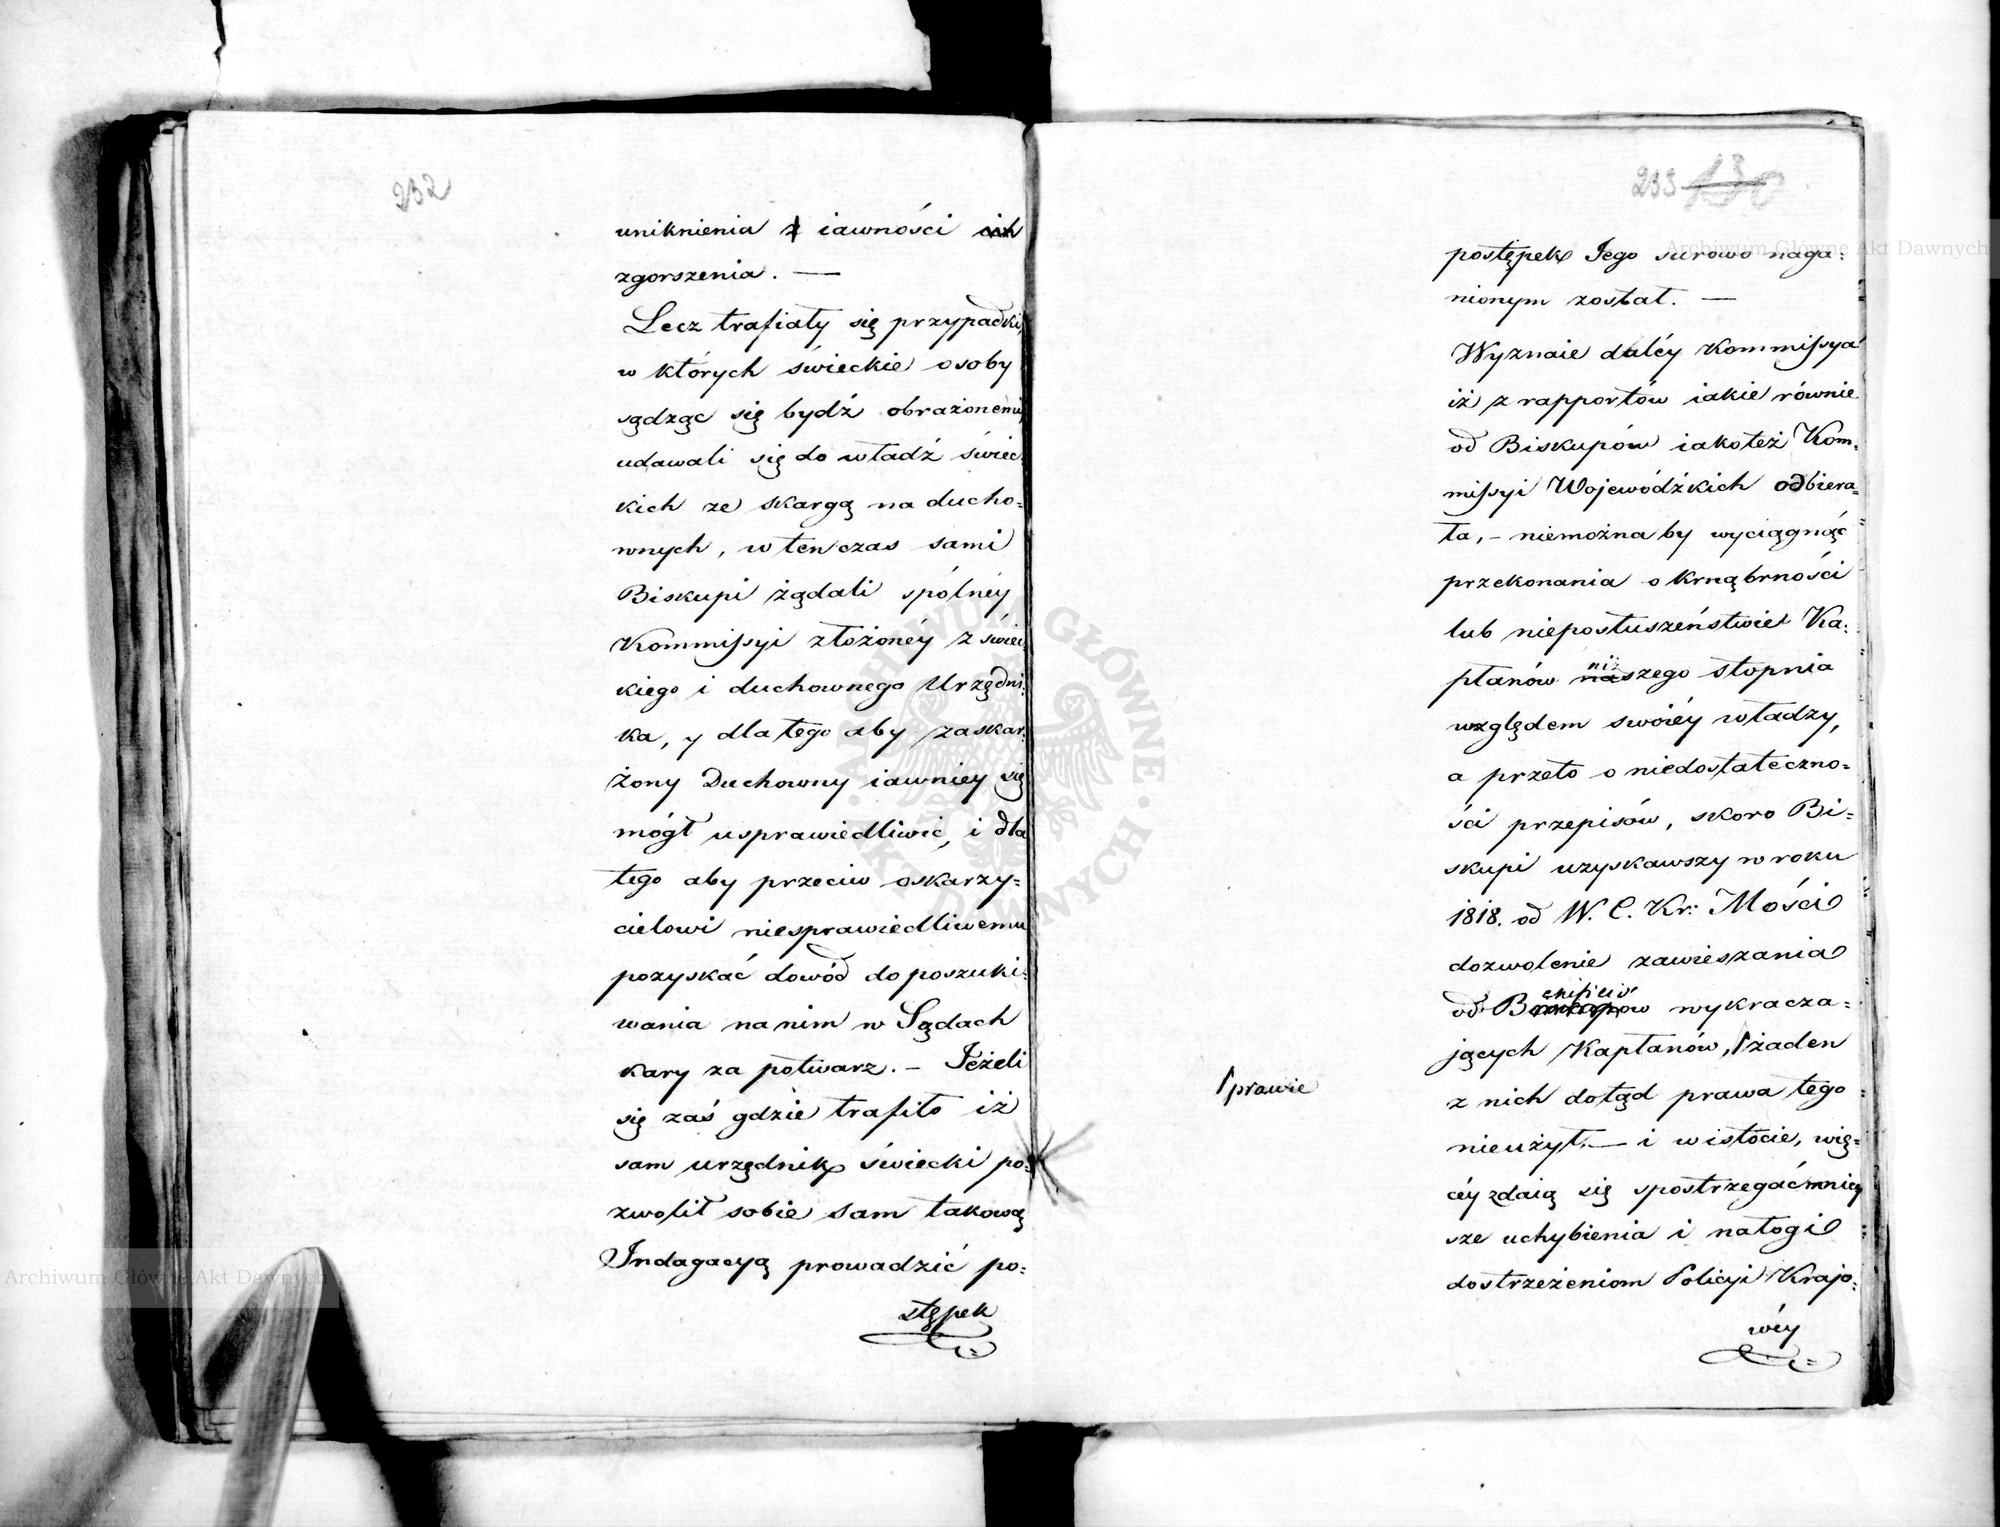 232
uniknienia z iawności ich
zgorszenia. —
Lecz trafiały się przypadki,
w których świeckie osoby
sądząc się bydź obrażonemi
udawali się do władź świec
kich ze skargą naducho=
wnych, w ten czas sami
Biskupi żądali spólnéy
Kommissyi złożonéy z świec
kiego i duchownego Urzędni=
ka, y dla tego aby zaskar=
żony Duchowny iawniey się
mógł usprawiedliwić, i dla
tego aby przeciw oskarzy=
cielowi niesprawiedliwemu
pozyskać dowód do poszuki=
wania na nim w Sądach
kary za potwarz. – Jeżeli
się zaś gdzie trafiło iż
sam urzędnik świecki po=
zwolił sobie sam takową
Indagacyą prowadzić po=
stępek
233 130
postępek Jego surowo naga=
nionym został. —
Wyznaie daléy Kommissya
iż z rapportów iakie równie
od Biskupów iakoteż Kom=
missyi Wojewódźkich odbiera=
ła, – niemożna by wyciągnąć
przekonania o krnąbrności
lub nieposłuszeństwie Ka=
ni
płanów naszego stopnia
względem swoiéy władzy,
a przeto o niedostateczno=
ści przepisów, skoro Bi=
skupi uzyskawszy w roku
1818. od W. C. Kr: Mości
dozwolenie zawieszania
eneficiów
od B wykracza=
jących Kapłanów, żaden
prawie
z nich dotąd prawa tego
nieużył. — i w istocie, wię=
céy zdaią się spostrzegać mniey
sze uchybienia i nałogi
dostrzeżeniom Policyi Krajo=
wéy
Archiwum Główne Akt Dawnych
Archiwum Główne Akt Dawnych
ARCHIWUM GŁÓWNE AKT DAWNYCH